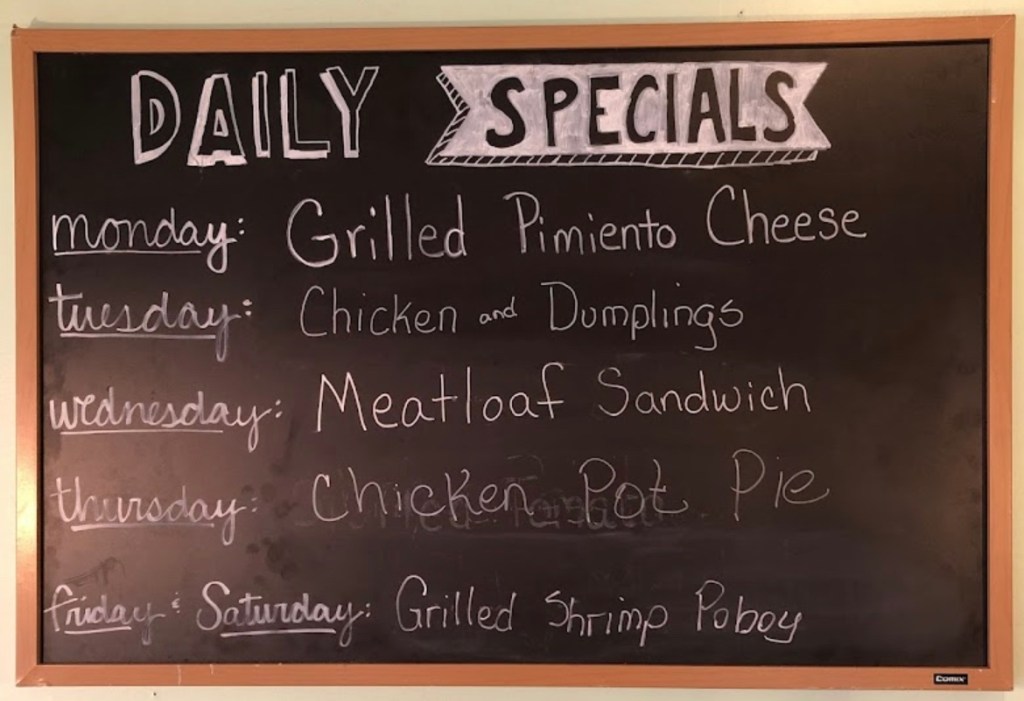 DAILY SPECIALS
monday: Grilled Pimiento Cheese
tuesday: Chicken and Dumplings
wednesday: Meatloaf Sandwich
thursday: Chicken Pot Pie
friday & Saturday: Grilled Shrimp Poboy
COMIX